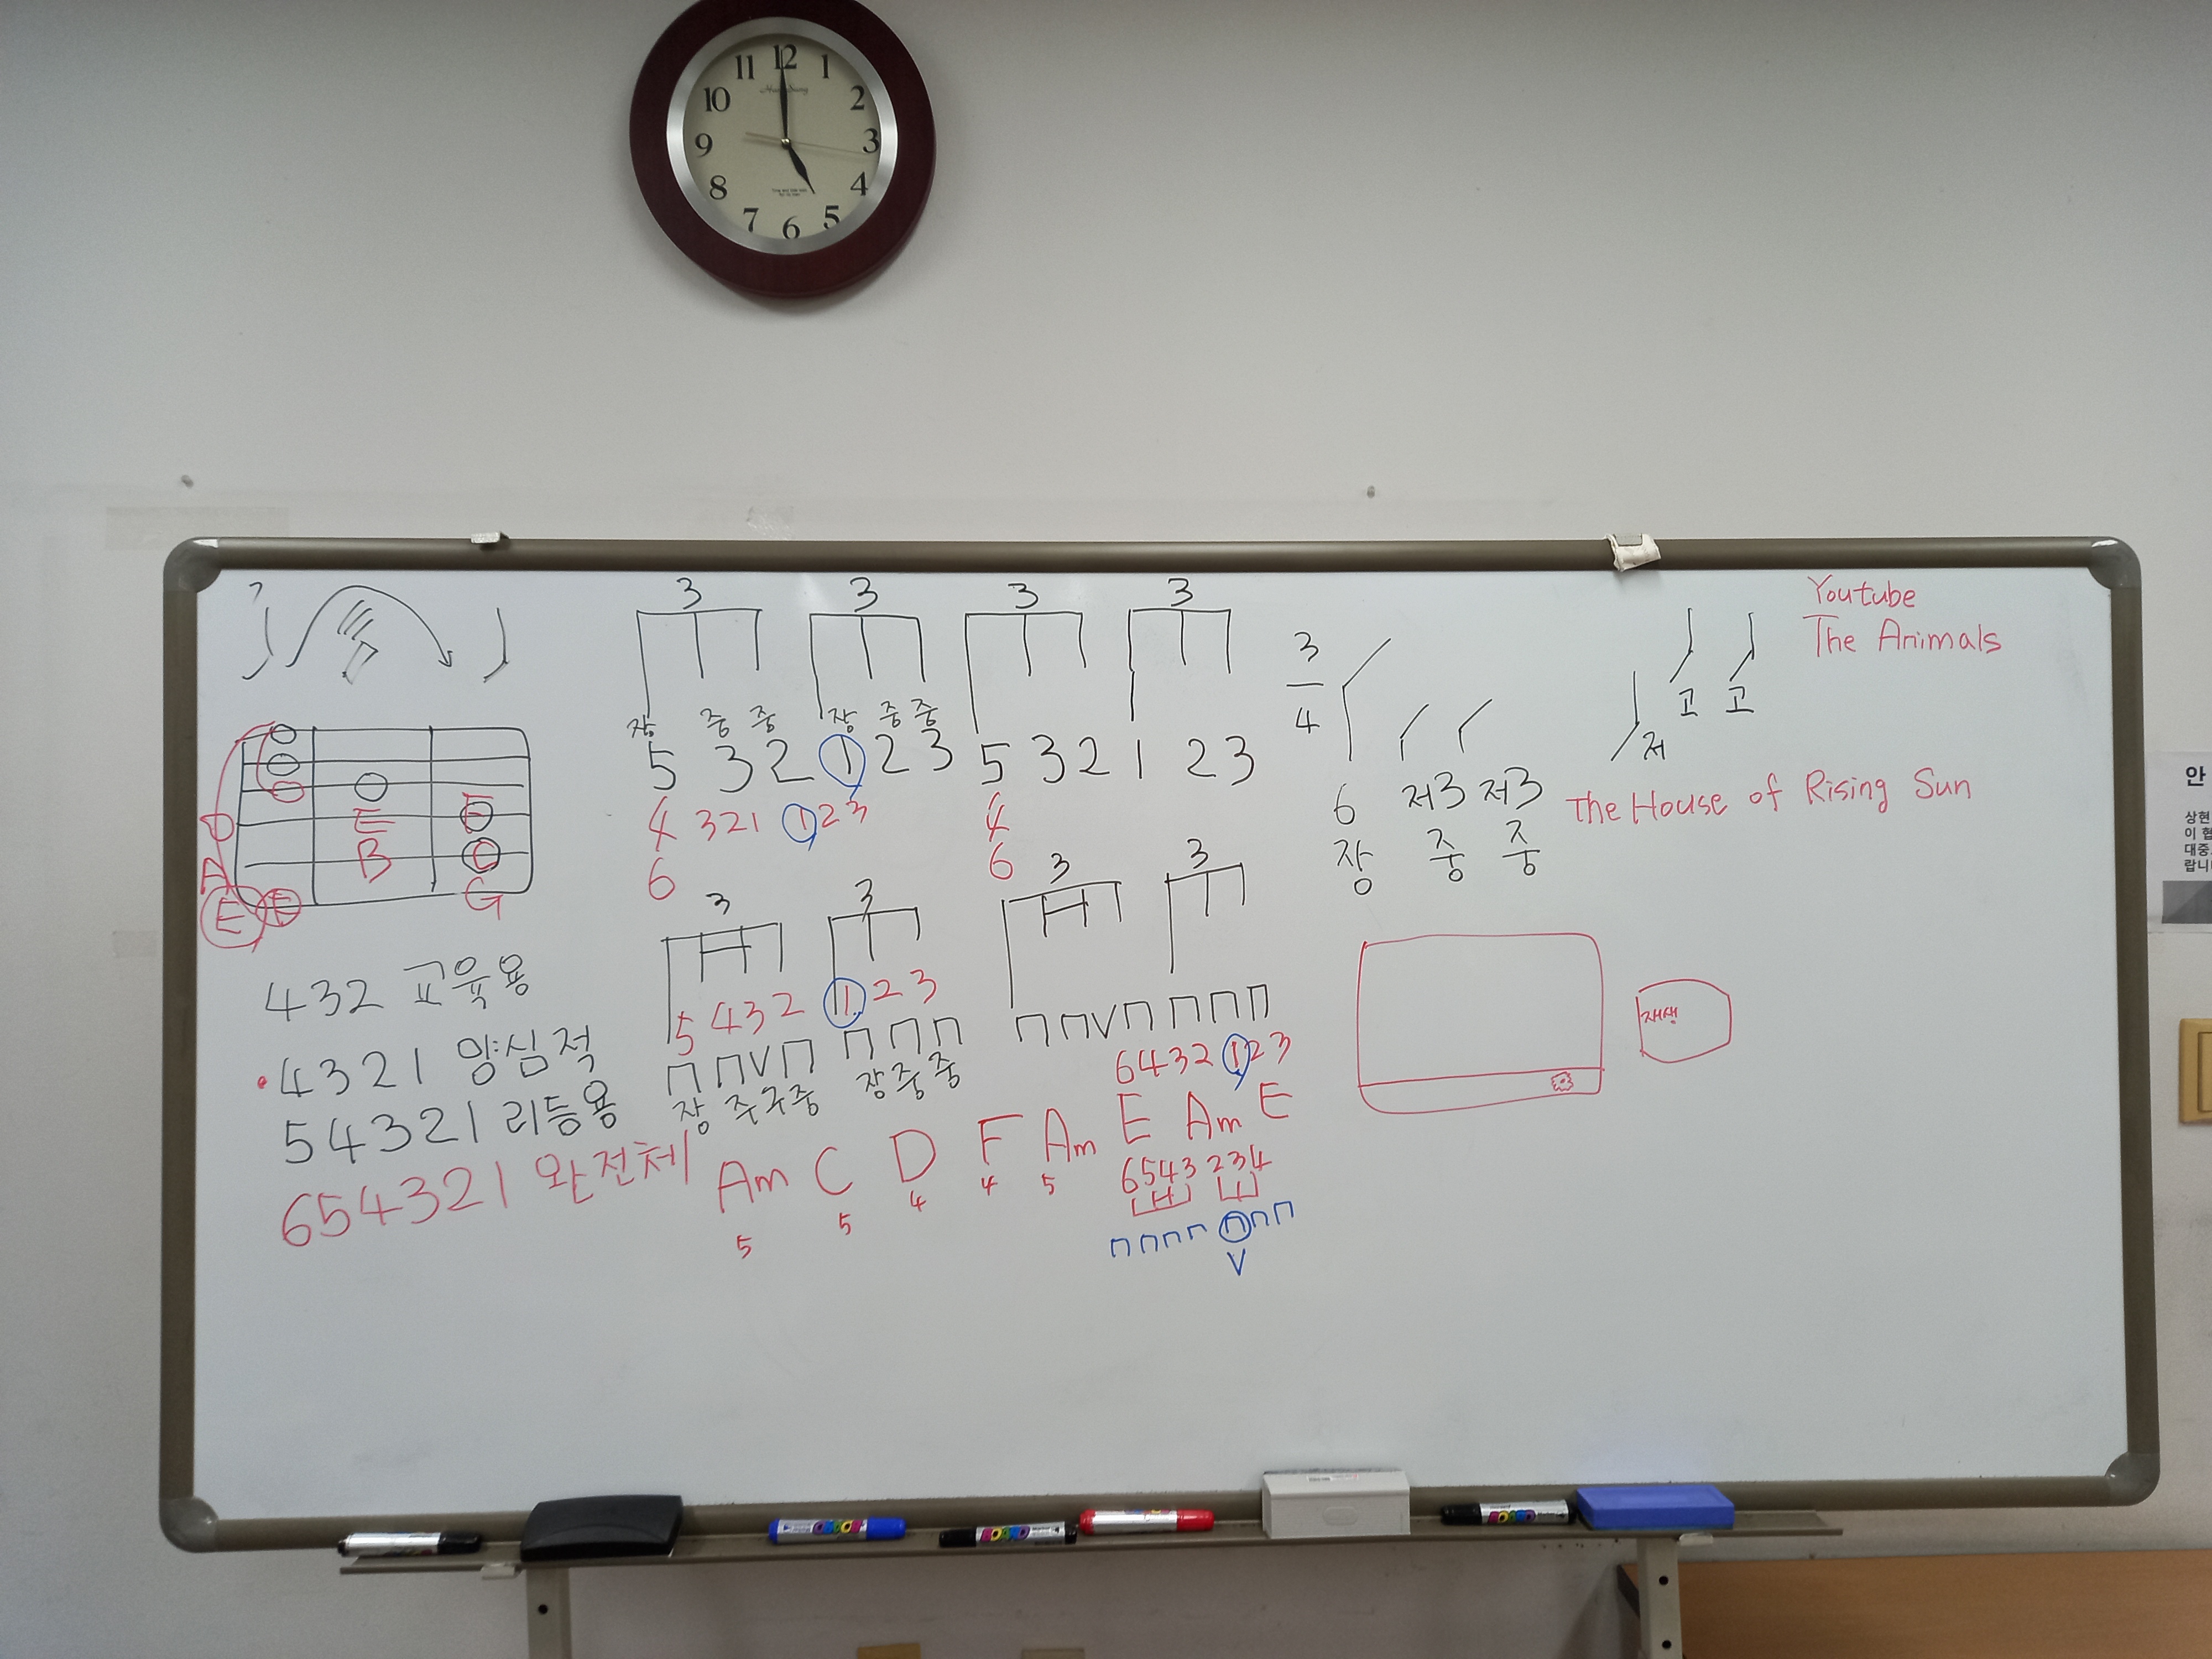 11 12 1
10 2
9 3
8 4
7 6 5
3 3 3 3
Youtube
The Animals
3
4
장 중 중 장 중 중
고 고
저
5 3 2 1 2 3 5 3 2 1 2 3
6 저3 저3
장 중 중
The House of Rising Sun
4 321 1 2 3 4
6 6
E F
B C
A
E F G
3 3 3 3
432 교육용
5 432 1 2 3
4321 양심적
ㄇ ㄇ V ㄇ ㄇ ㄇ ㄇ ㄇ ㄇ V ㄇ ㄇ ㄇ ㄇ
장 주구중 장 중 중
6432 1 2 3
재생
54321 리듬용
654321 완전체
Am C D F Am E Am E
5 5 4 4 5
6543 234
ㄇ ㄇ ㄇ ㄇ ㄇ ㄇ ㄇ
V
안
상현
대중